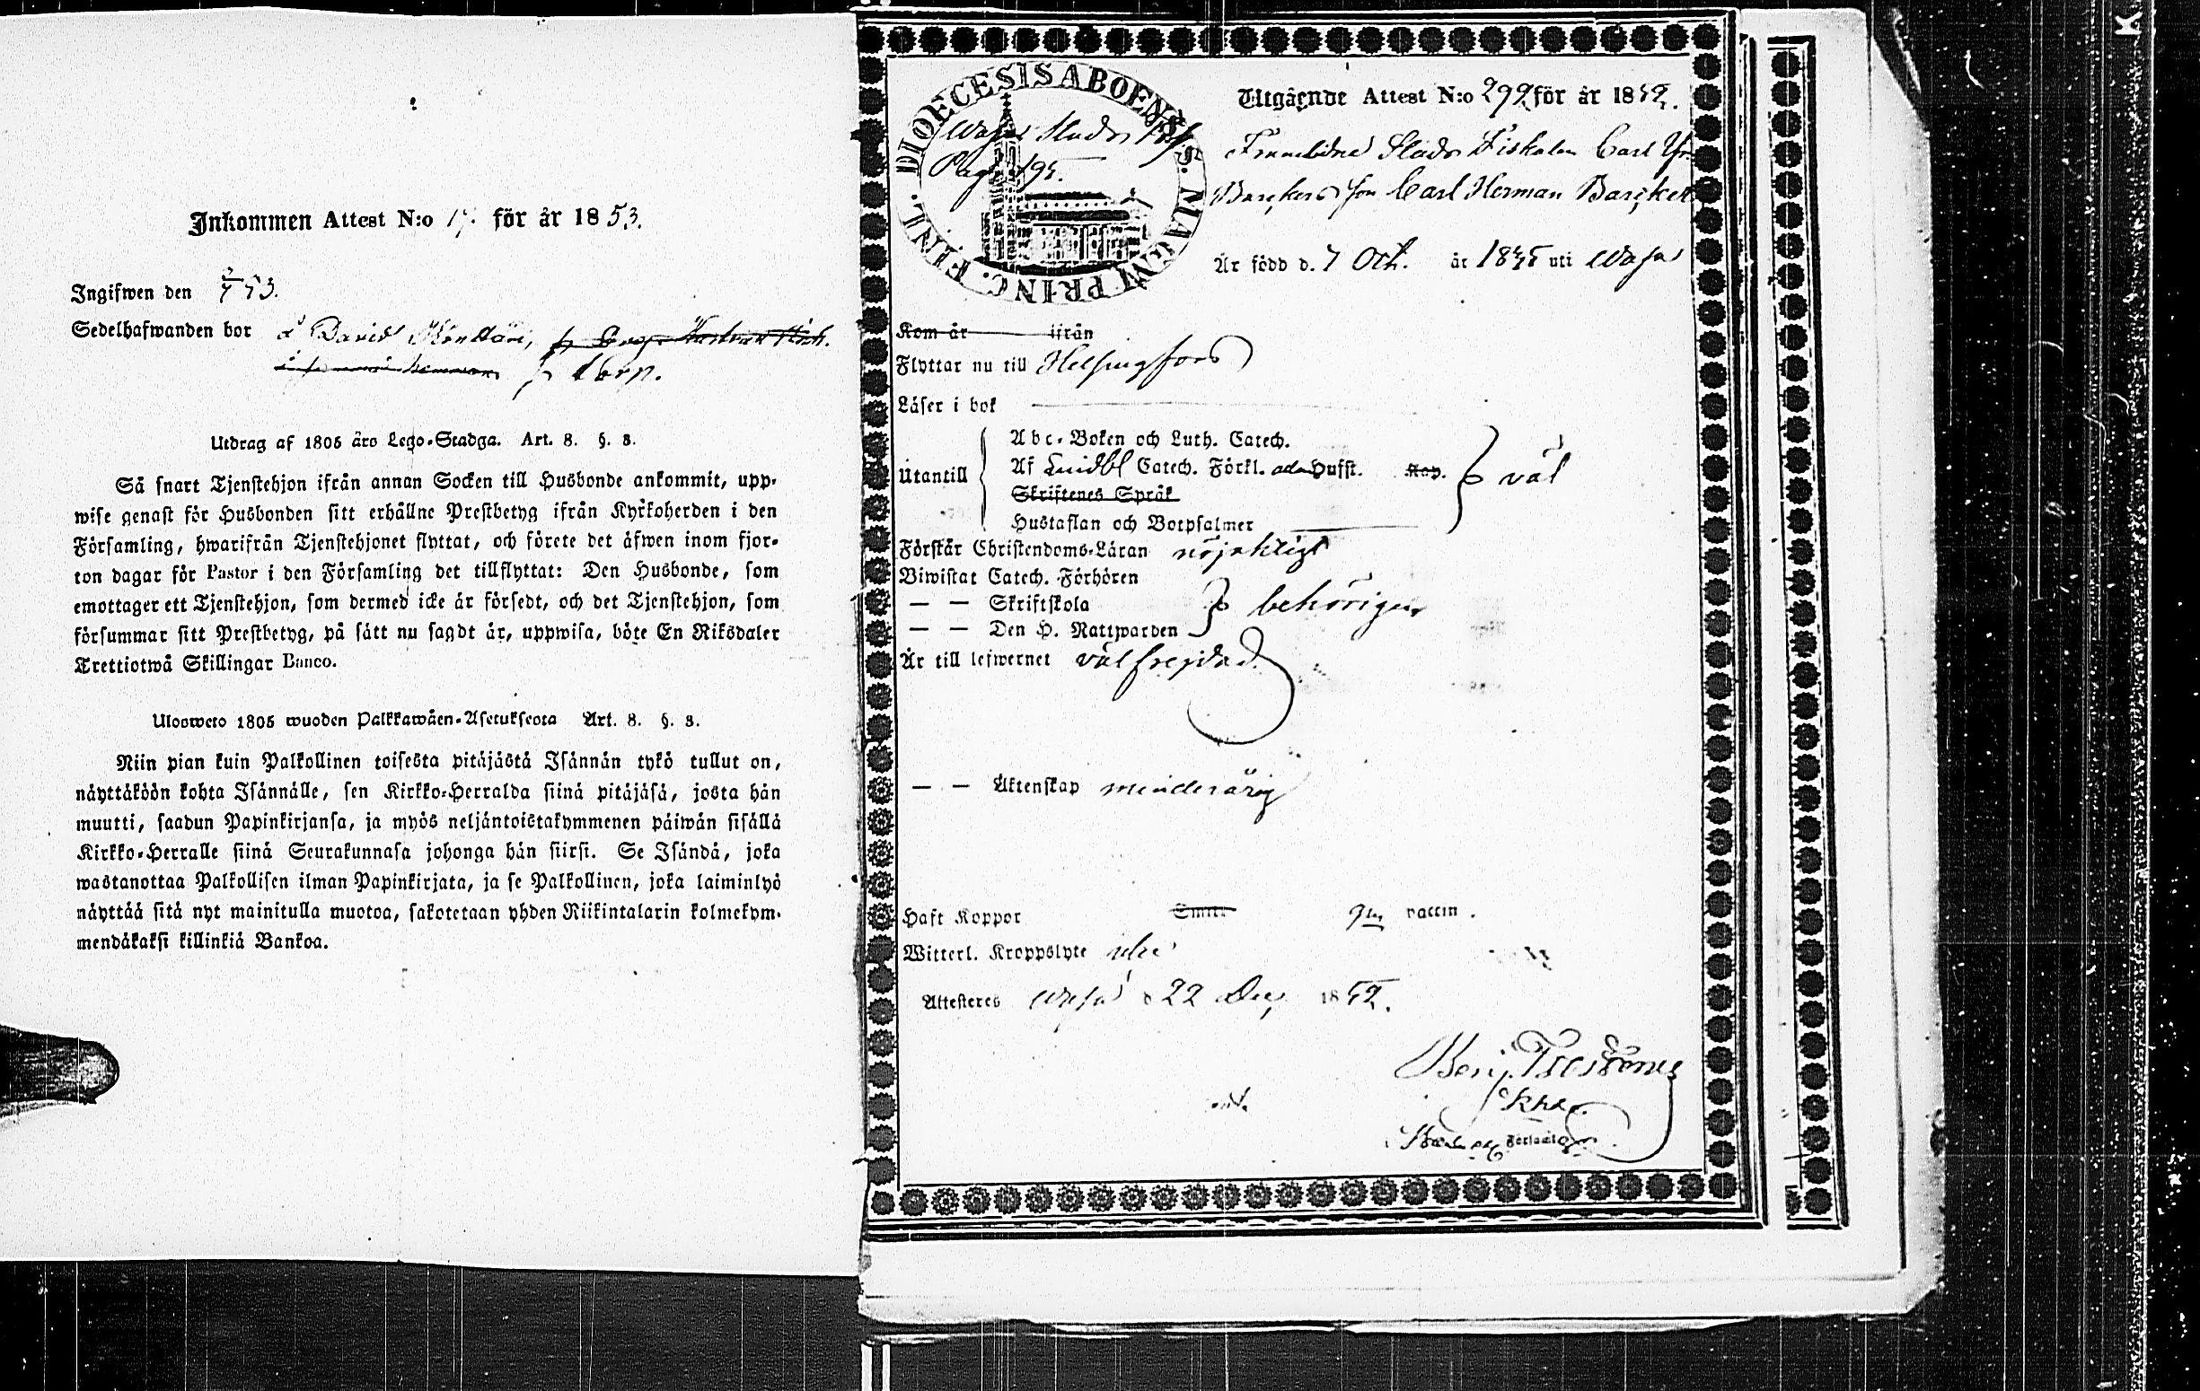 Inkommen Attest N:o 17. för år 1853.
Ingifwen den 3/7 53.
Sedelhafwanden bor å David
Utdrag af 1805 års Lego-Stadga. Art. 8. §. 8.
Så snart Tjenstehjon ifrån annan Socken till Husbonde ankommit, upp-
wise genast för Husbonden sitt erhållne Prestbetyg ifrån Kyrkoherden i den
Församling, hwarifrån Tjenstehjonet flyttat, och förete det äfwen inom fjor-
ton dagar för Pastor i den Församling det tillflyttat: Den Husbonde, som
emottager ett Tjenstehjon, som dermed icke är försedt, och det Tjenstehjon, som
försummar sitt Prestbetyg, på sätt nu sagdt är, uppwisa, böte En Riksdaler
Trettiotwå Skillingar Banco.
Ulosweto 1805 wuoden Palkkawäen-Asetuksesta Art. 8. §. 8.
Niin pian kuin Palkollinen toisesta pitäjästä Isännän tykö tullut on,
näyttäköön kohta Isännälle, sen Kirkko-Herralda siinä pitäjäsä, josta hän
muutti, saadun Papinkirjansa, ja myös neljäntoistakymmenen päiwän sisällä
Kirkko-Herralle siinä Seurakunnasa johonga hän siirsi. Se Isändä, joka
wastanottaa Palkollisen ilman Papinkirjata, ja se Palkollinen, joka laiminlyö
näyttää sitä nyt mainitulla muotoa, sakotetaan yhden Riikintalarin kolmekym-
mendäkaksi killinkiä Bankoa.
DIOECESIS ABOENS. MAGNI PRINC. FINL.
Wasa Stads
Pag. 195.
Utgående Attest N:o 299 för år 1852.
Framlidne Stads Fiskalen Carl
Barckers son Carl Herman Barcker
Är född d. 7 Oct. år 1835 uti Wasa
Kom år ifrån
Flyttar nu till Helsingfors
Läser i bok
Utantill
Abc-Boken och Luth. Catech.
Af Catech. Förkl. Hufst. Kap. väl
Skriftenes Språk
Hustaflan och Botpsalmer
Förstår Christendoms-Läran nöjaktigt
Biwistat Catech. Förhören
— — Skriftskola behörigen
— — Den H. Nattwarden
Är till lefwernet välfrejdad.
— — Äktenskap minderårig
Haft Koppor Smitt. gm vaccin.
Witterl. Kroppslyte
Attesteres Wasa d 22 Dec. 1852.
Benj.
Khde.
Församling